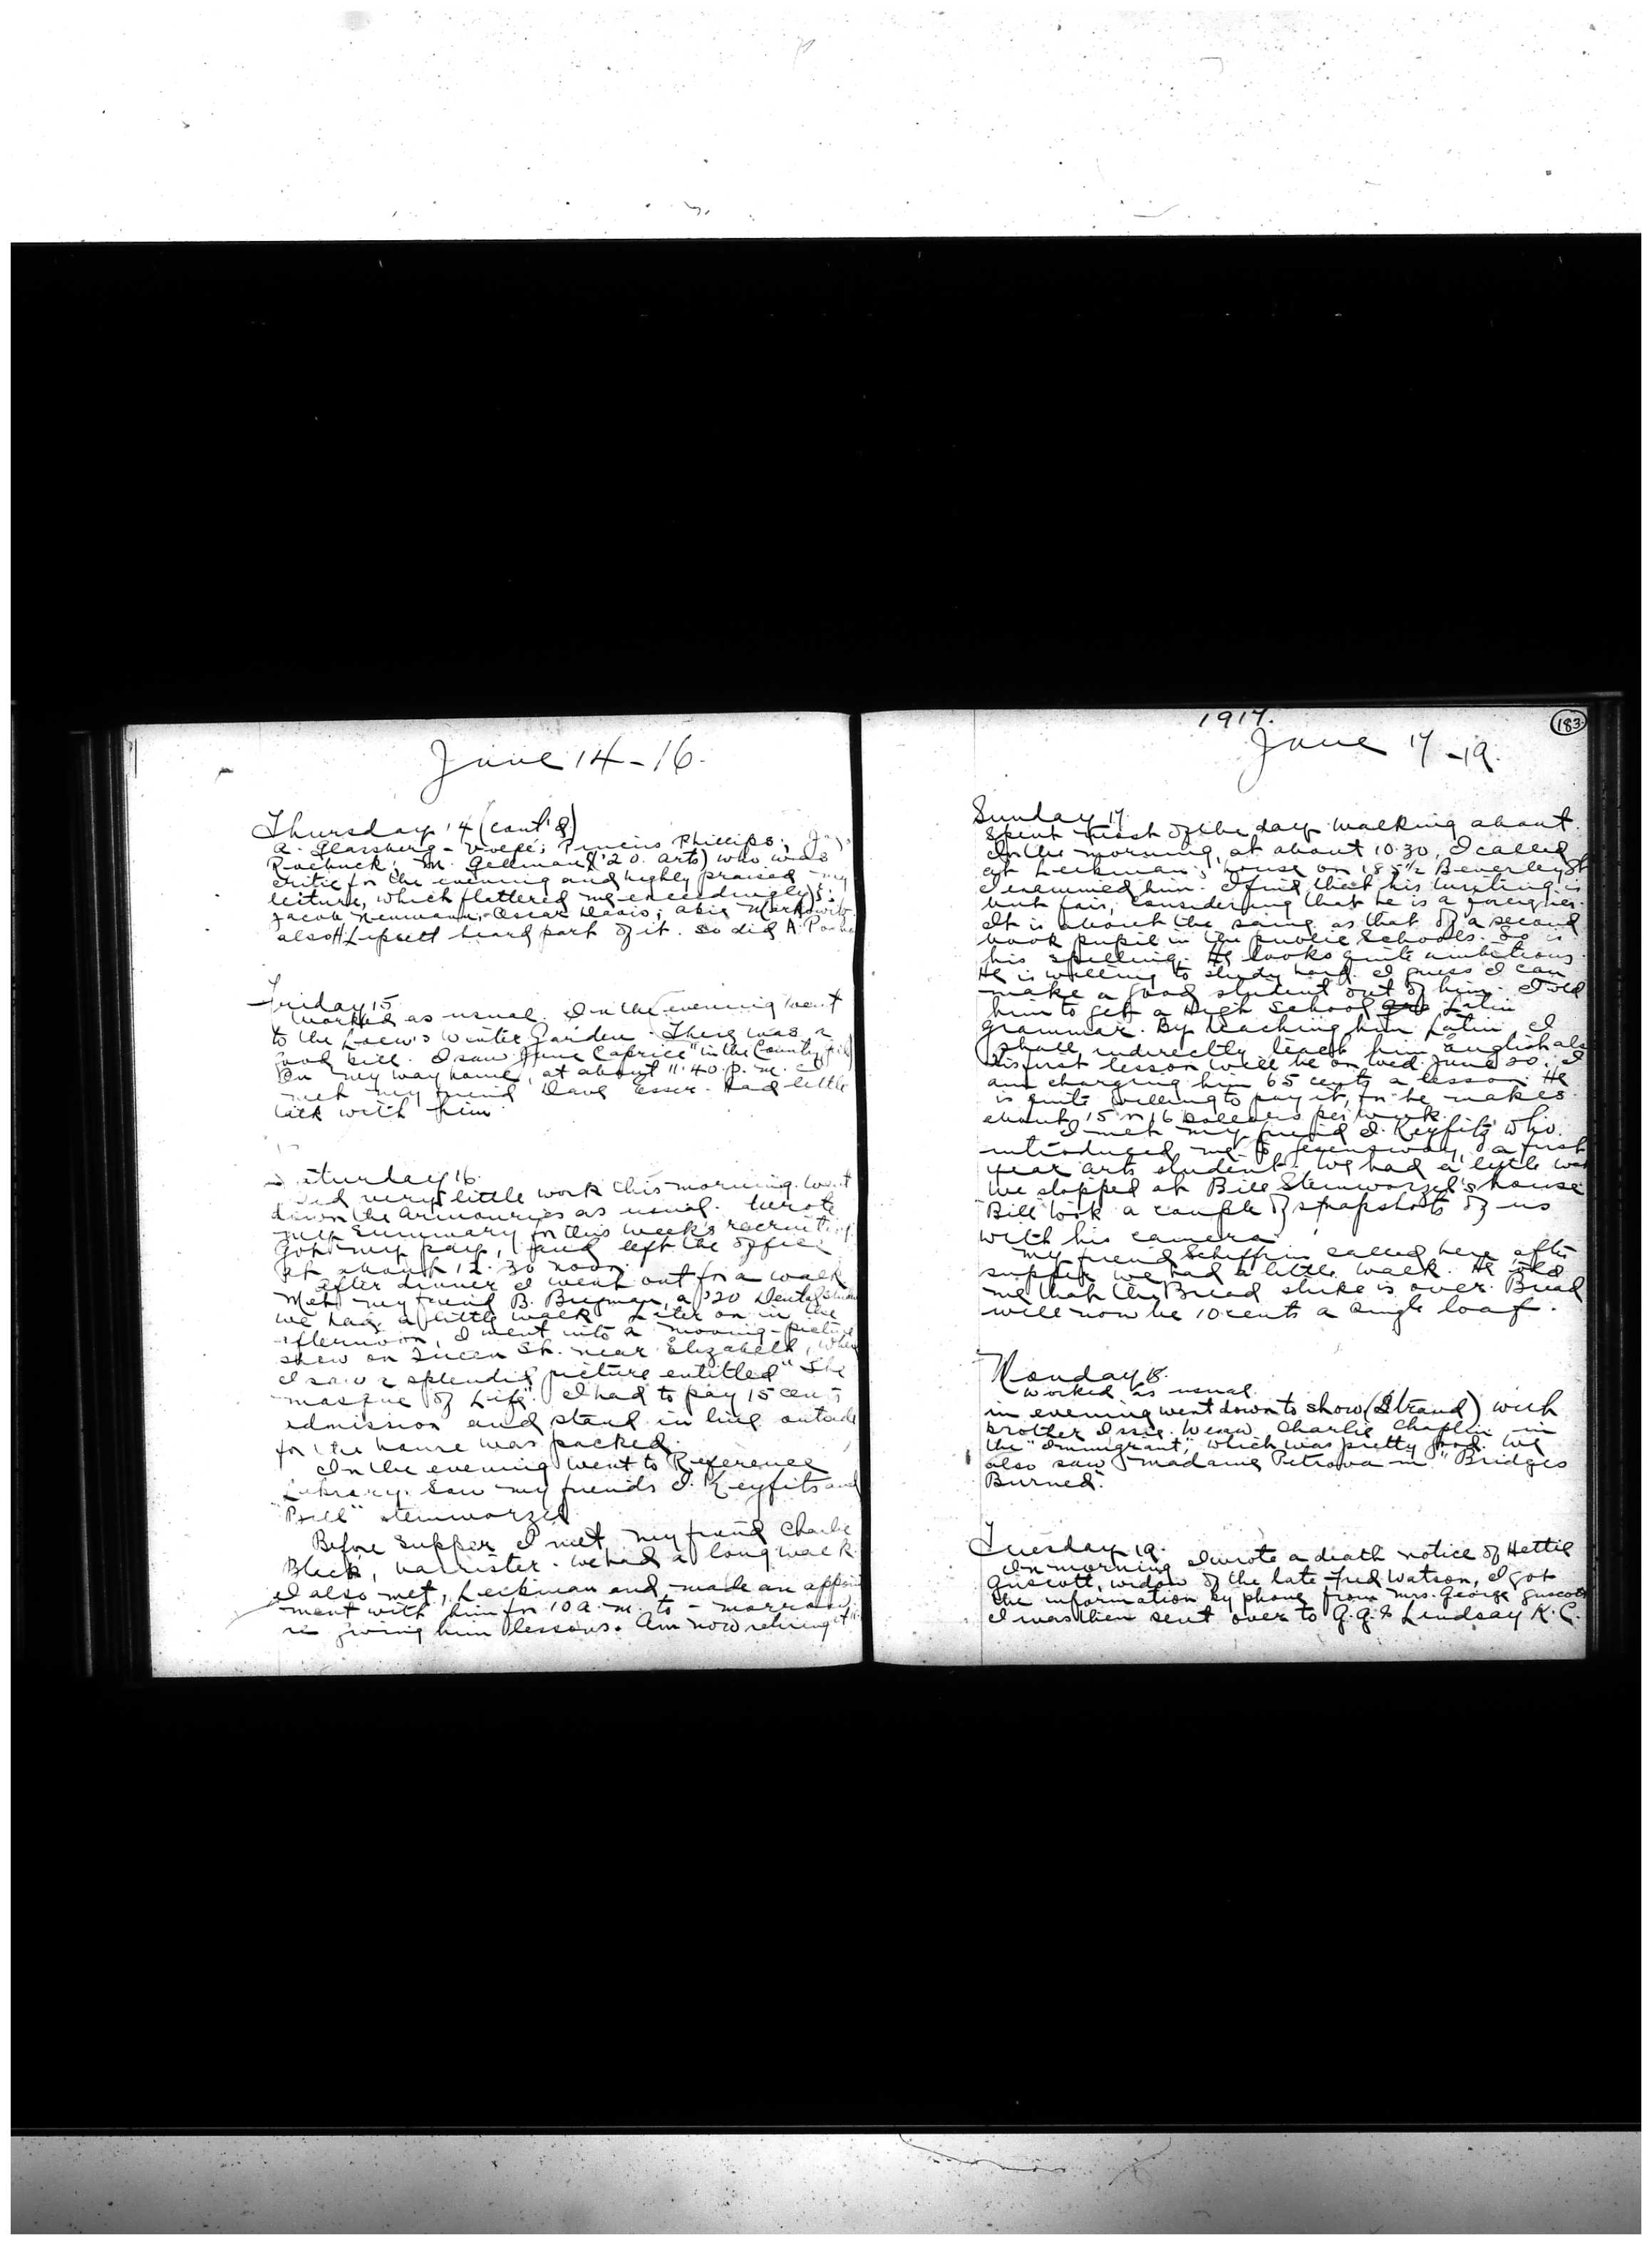 June 14-16.
Thursday 14 (cont'd)
A. Glassberg - Wolfe; Pincus Phillips;
Roebuck; M. Gellman ('20 Arts) who was
critic for the evening and highly praised my
lecture, which flattered me exceedingly;
Jacob Neumann, Oscar Davis; Abie Markowitz
also H Lipsett heard part of it. So did A.
Friday 15
Worked as usual. In the evening went
to the Loew's Winter Garden. There was a
good bill. I saw June Caprice "in the Country
On my way home, at about 11.40 p.m. I
met my friend Dave Esser. Had little
talk with him.
Saturday 16
Did very little work this morning. Went
down the Armouries as usual. Wrote
my summary for this week's recruiting.
Got my pay, and left the office
at about 12.30 noon.
After dinner I went out for a walk
Met my friend B. Brgman, a '20 Dental
We had a little walk. Later on in the
afternoon, I went into a moving-picture
show on Queen St. near Elizabeth, where
I saw a splendid picture entitled "The
Masque of Life". I had to pay 15 cents
admission and stand in line outside
for the house was packed.
In the evening went to Reference
Library. Saw my friends I. Keyfits and
"Bill" Steinworzel
Before supper I met my friend Charlie
Black, barrister. We had a long walk.
I also met, Leckman and made an appoint
ment with him for 10 a.m. to-morrow
re giving him lessons. Am now retiring
1917.
183
June 17-19.
Sunday 17
Spent most of the day walking about.
In the morning, at about 10.30, I called
at Leckman's house on 185½ Beverley St
I examined him. I find that his writing is
but fair, considering that he is a foreigner.
It is about the same as that of a second
book pupil in the public schools. So is
his spelling. He looks quite ambitious.
He is willing to study hard. I guess I can
make a good student out of him. I told
him to get a High School Latin
Grammar. By teaching him Latin, I
shall indirectly teach him English also
His first lesson will be on Wed. June 20. I
am charging him 65 cents a lesson. He
is quite willing to pay it, for he makes
about 15 or 16 dollars per week.
I met my friend I. Keyfitz who
introduced me to a first
year arts student. We had a little walk
We stopped at Bill Steinworzel's house
"Bill" took a couple of snapshots of us
with his camera.
My friend Schiffrin called here after
supper we had a little walk. He told
me that the Bread strike is over. Bread
will now be 10 cents a single loaf.
Monday 18.
Worked as usual.
in evening went down to show (Strand) with
brother Issie. We saw Charlie Chaplin in
the "Immigrant," which was pretty good. We
also saw Madame Petrova in "Bridges
Burned."
Tuesday 19.
In morning I wrote a death notice of Hettie
Guscott, widow of the late Fred Watson, I got
the information by phone from Mrs. George Guscott
I was then sent over to G.G.S. Lindsay K.C.